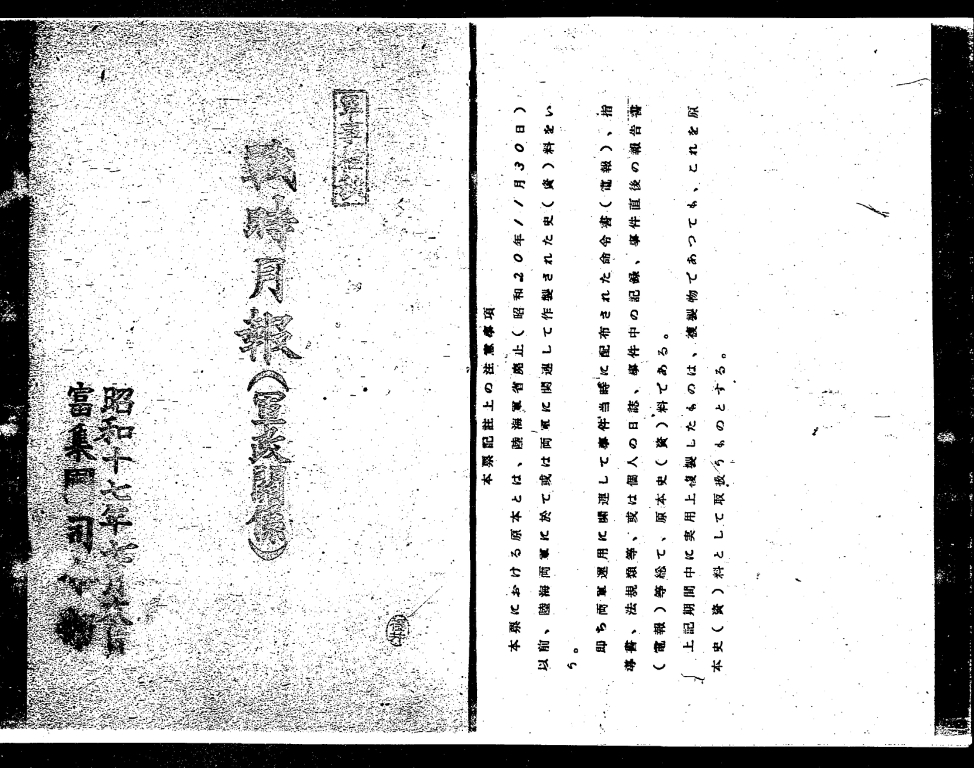 軍事極秘
戰時月報(軍政關係)
昭和十七年七月 日
富集團司令部
本票記註上の注意事項
本票における原本とは、陸海軍省廃止(昭和20年11月30日)
以前、陸海両軍に於て或は両軍に関連して作製された史(資)料をい
う。
即ち両軍運用に関連して事件当時に配布された命令書(電報)、指
導書、法規類等、或は個人の日誌、事件中の記録、事件直後の報告書
(電報)等総て、原本史(資)料である。
上記期間中に実用上複製したものは、複製物であつても、これを原
本史(資)料として取扱うものとする。